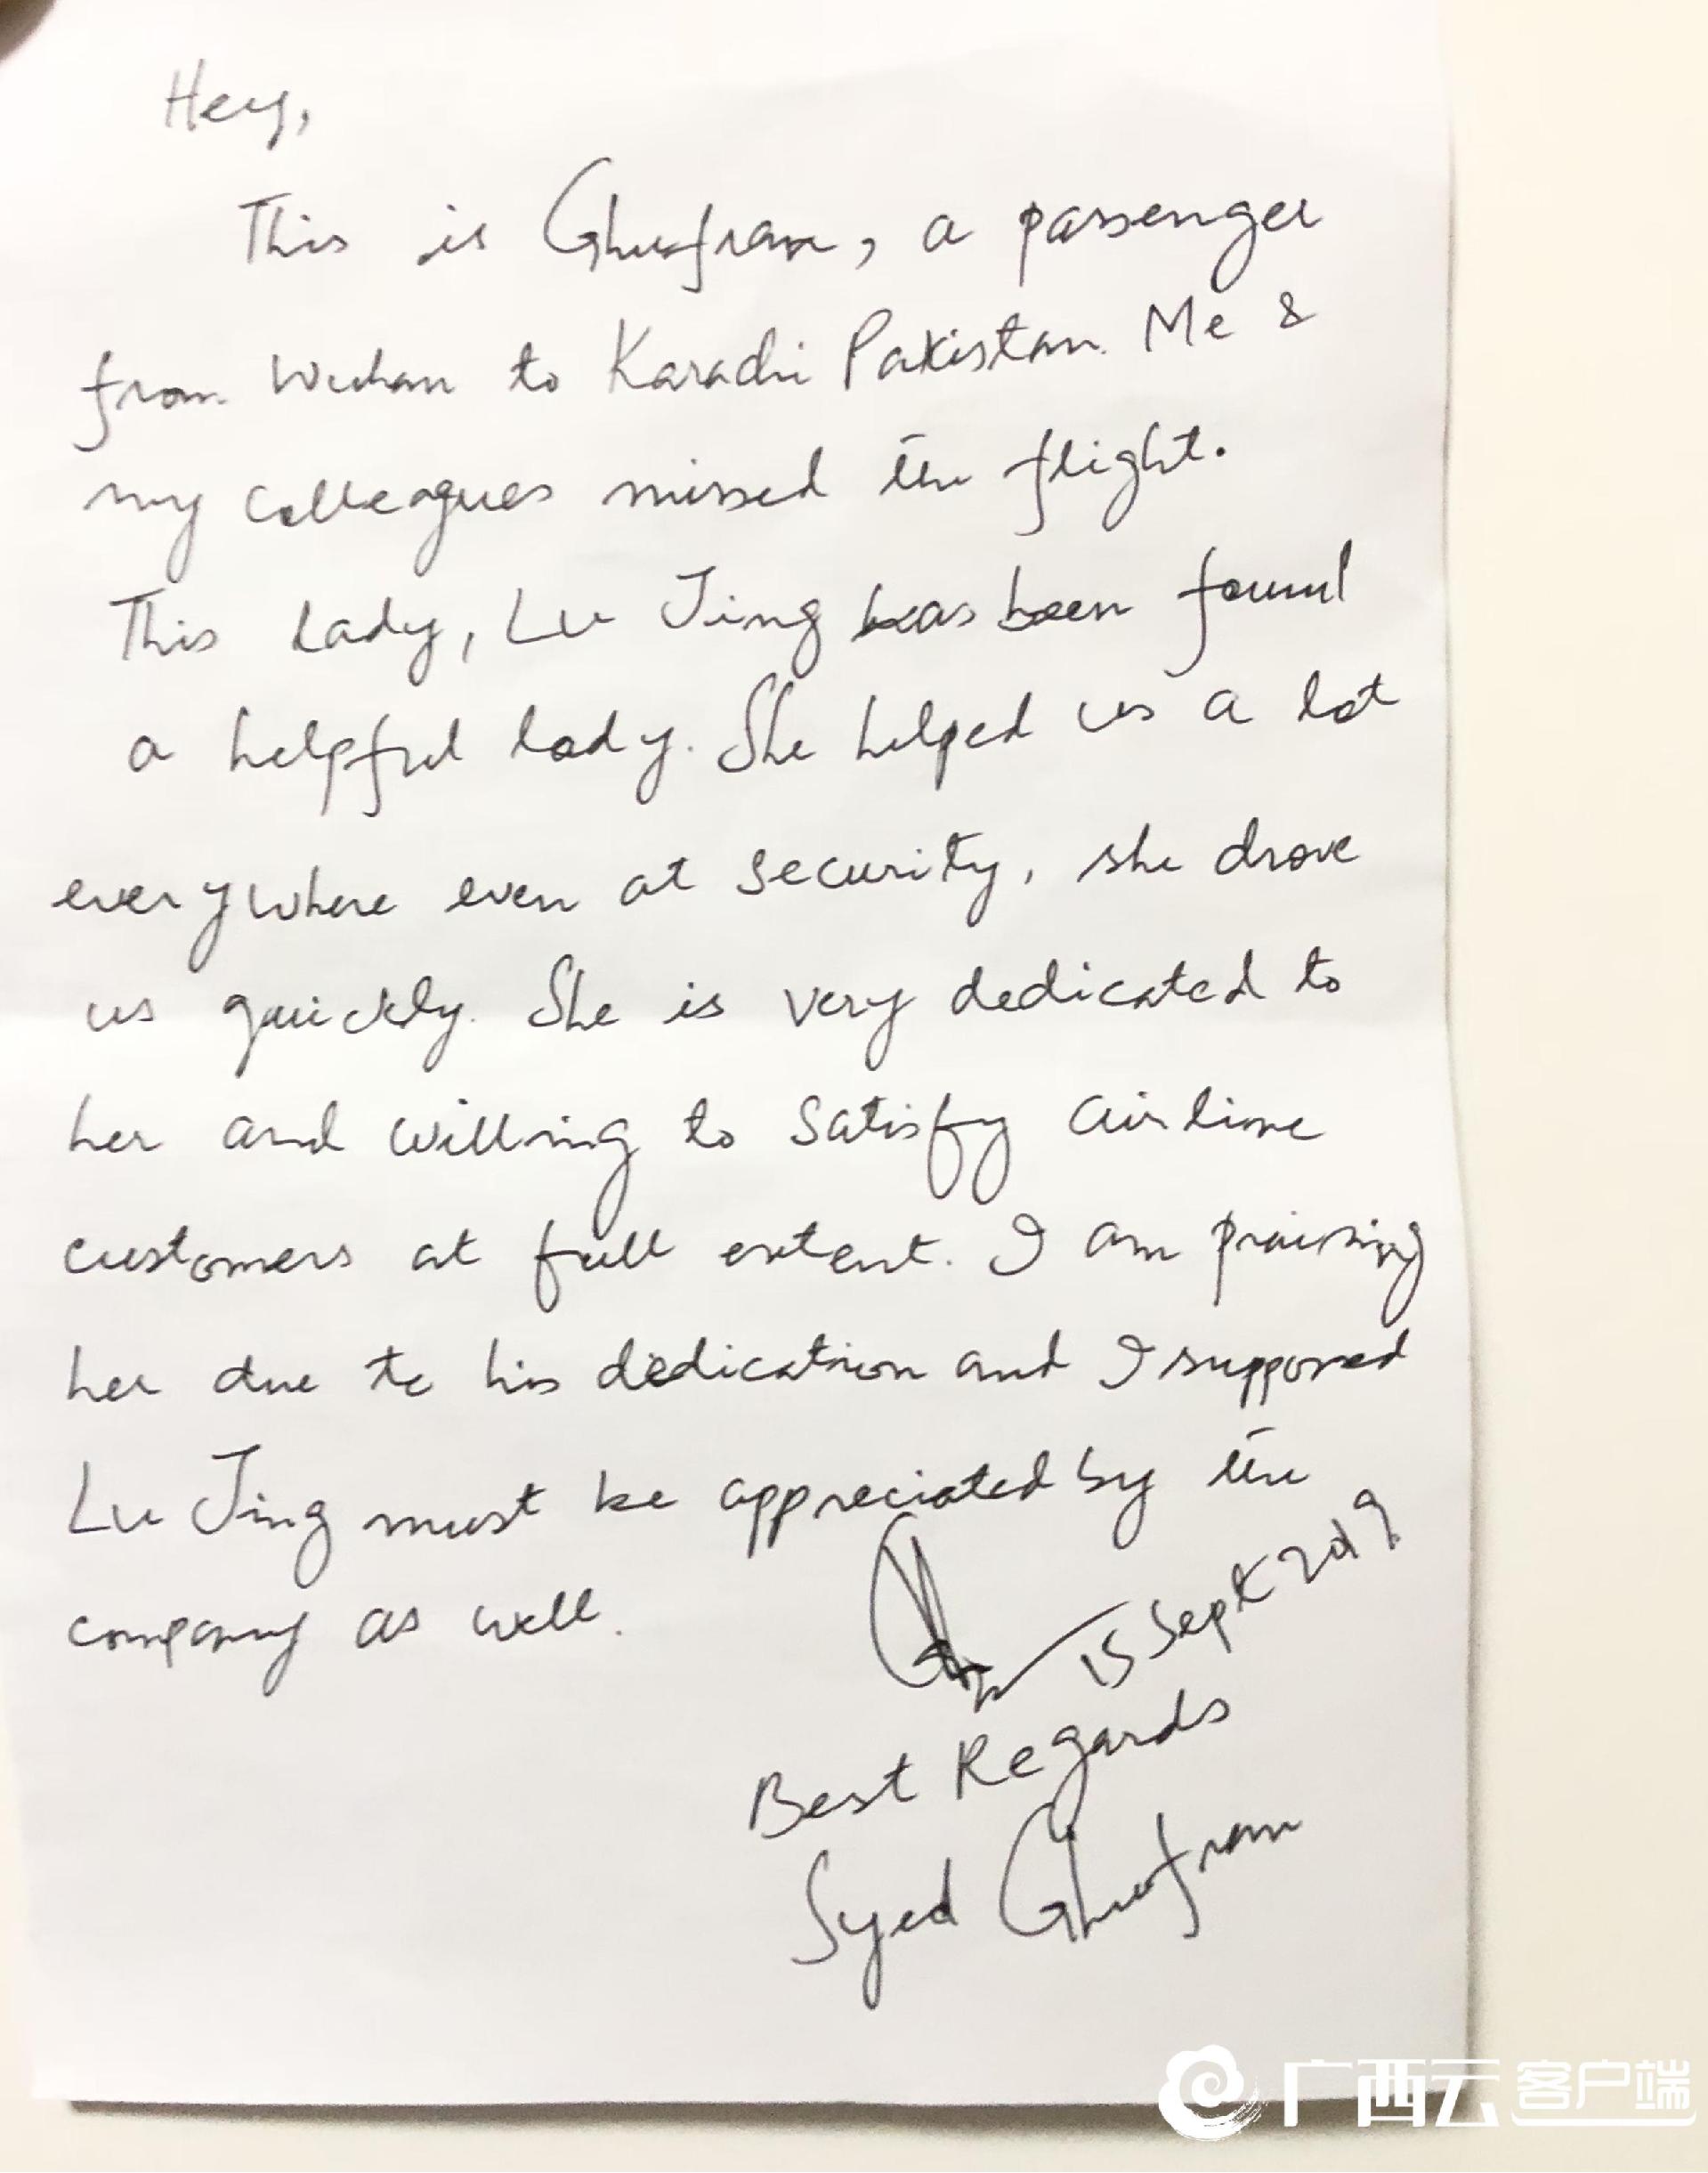 Hey,
This is Ghufran, a passenger
from Wuhan to Karachi Pakistan. Me &
my colleagues missed the flight.
This lady, Lu Jing has been found
a helpful lady. She helped us a lot
everywhere even at security, she drove
us quickly. She is very dedicated to
her and willing to satisfy airline
customers at full extent. I am praising
her due to his dedication and I supposed
Lu Jing must be appreciated by the
company as well.
15 Sept 2019
Best Regards
Syed Ghufran
广西云客户端